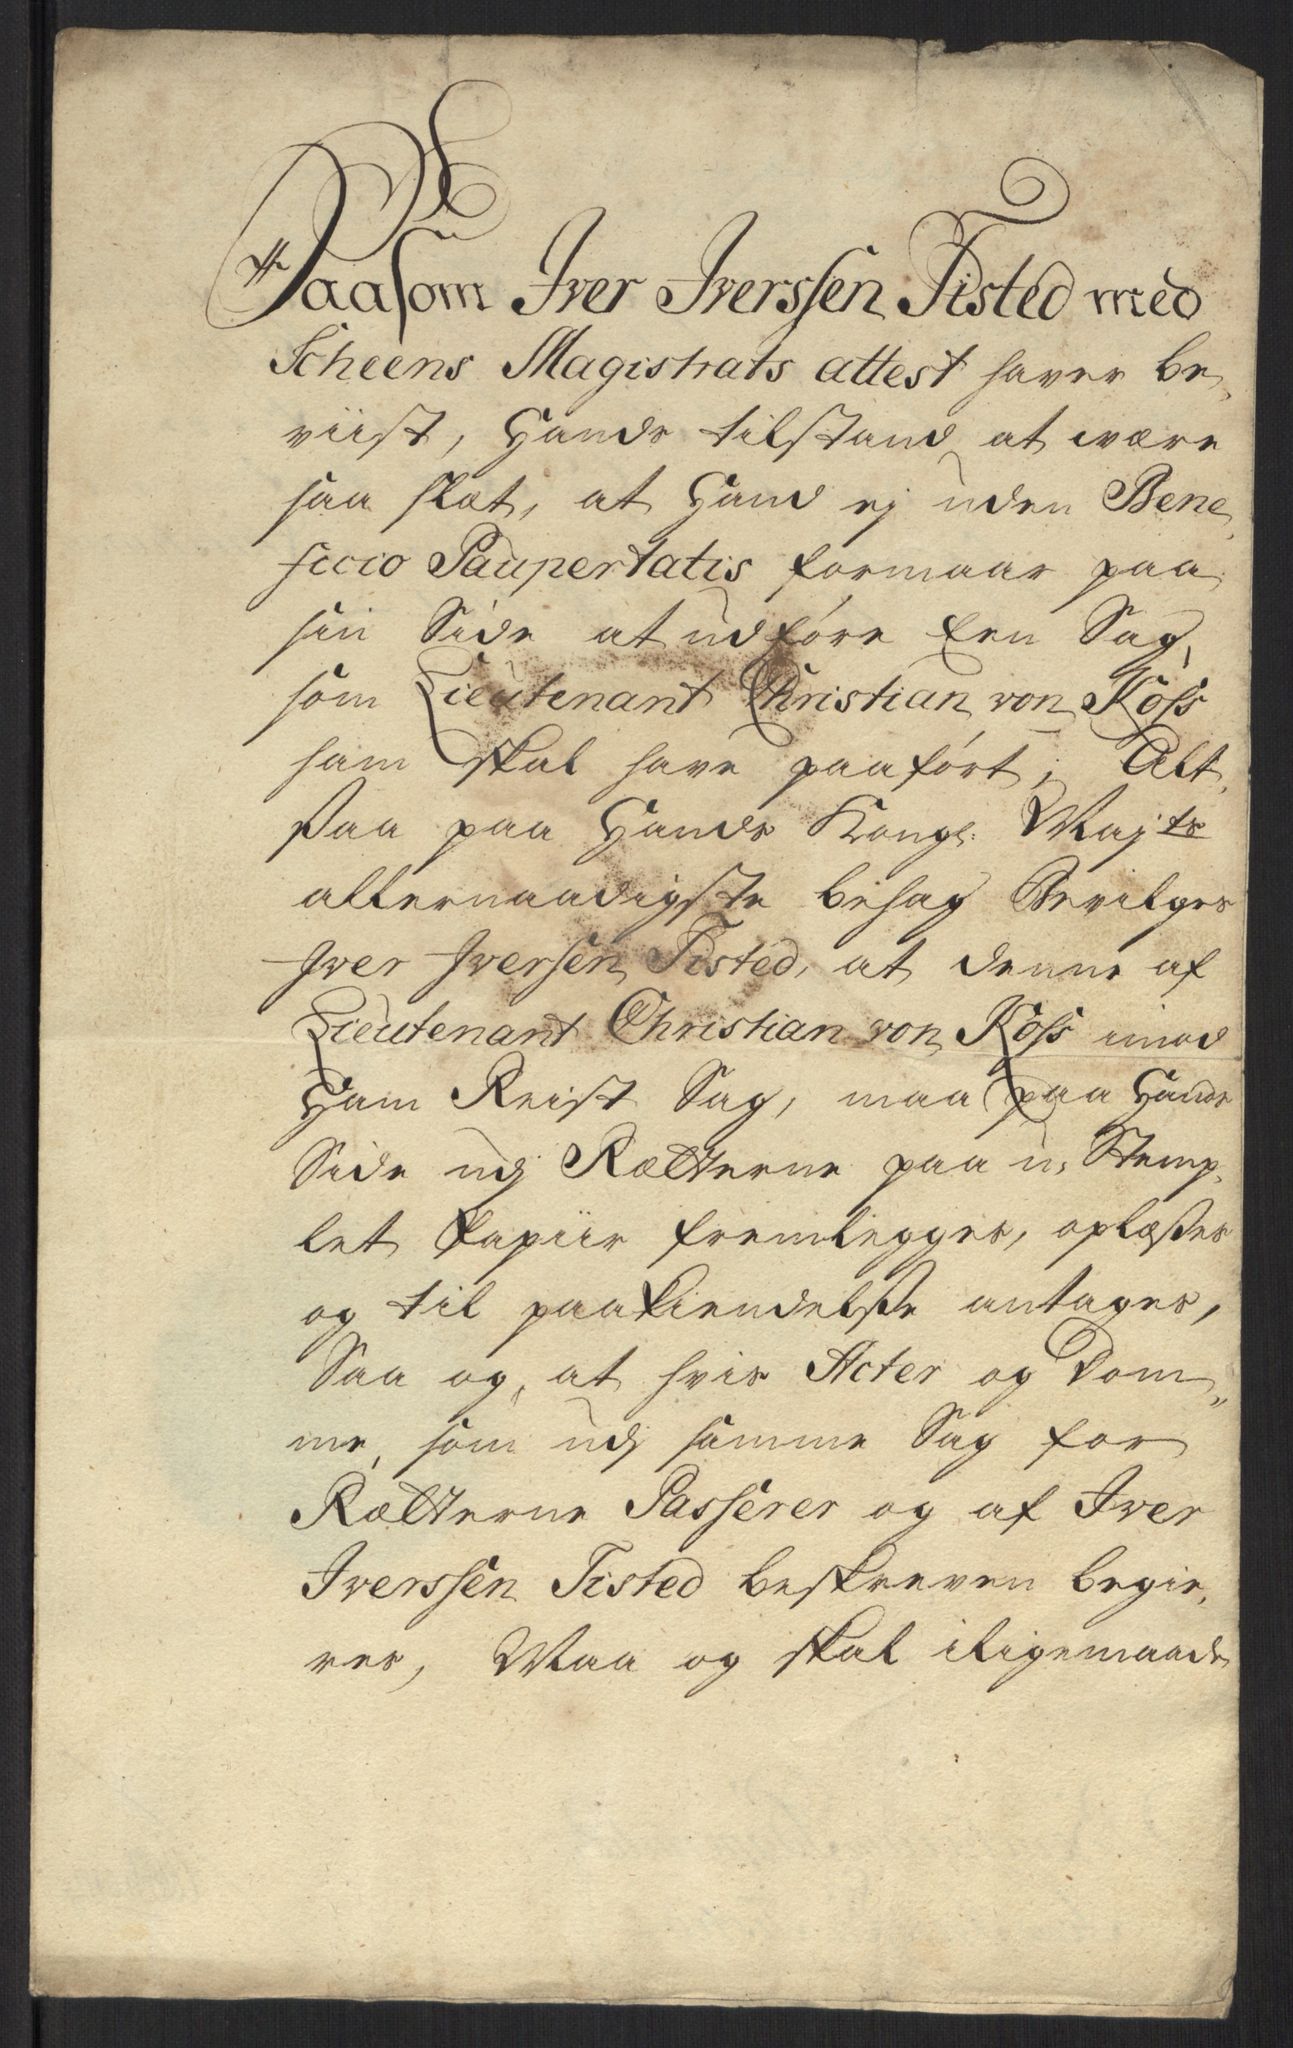 Saasom Iver Iverssen Tisted med
Scheens Magistrats attest haver be,
viist, Hands tilstand at være
saa slæt, at Hand ej uden Bene,
ficio Paupertatis formaar paa
sin Side at udføre Een Sag,
som Lieutenant Christian von Koss
ham skal have paaført; Alt,
saa paa Hands Kongl: Maj:ts
allernaadigste behag Bevilges
Iver Iversen Tisted, at denne af
Lieutenant Christian von Koss imod
Ham Reist Sag, maa paa Hands
Side udj Rætterne paa u, Stemp,
let Papiir fremlegges, oplæses
og til paakiendelse antages,
Saa og, at hvis Acter og Dom„
me, som udj samme Sag for
Rætterne Passerer og af Iver
Iverssen Tisted beskreven begie,
res, Maa og skal iligemaade